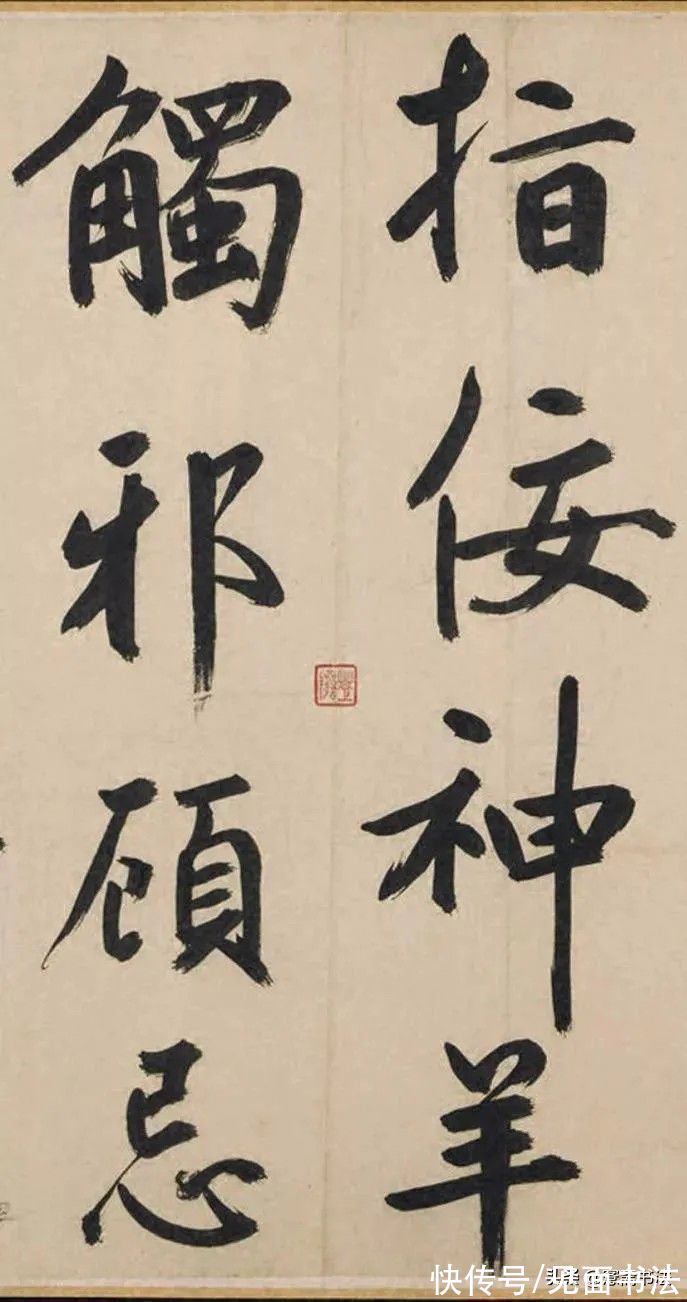 指佞神羊
觸邪顧忌
快传号/见面书法